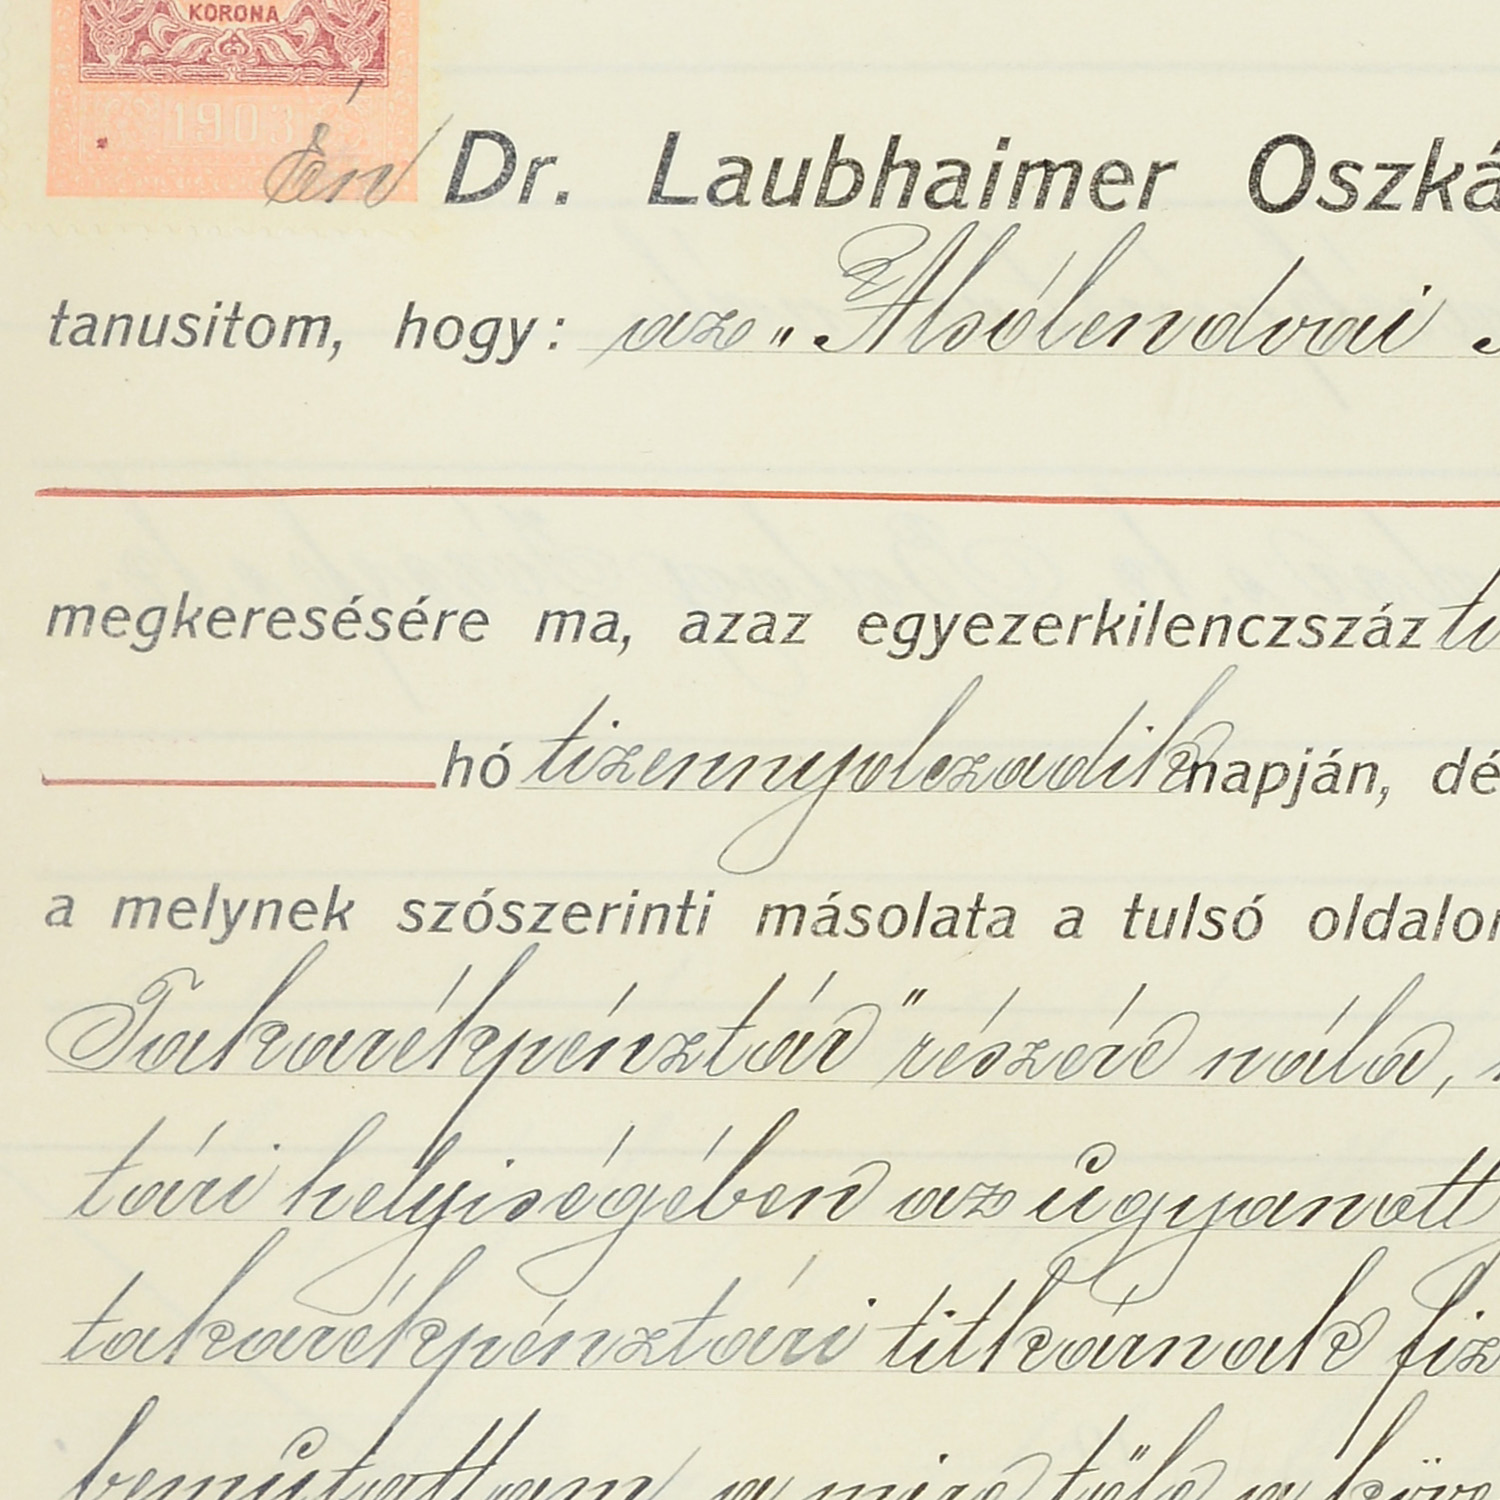 KORONA
1903
Én Dr. Laubhaimer Oszká
tanusitom, hogy: az „Alsólendvai
megkeresésére ma, azaz egyezerkilenczszáz ti
hó tizennyolczadik napján, dé
a melynek szószerinti másolata a tulsó oldalon
Takarékpénztár" részére nála,
tári helyiségében az ugyanott
takarékpénztári titkárnak fiz
bemutattam, a mire tőle a köve